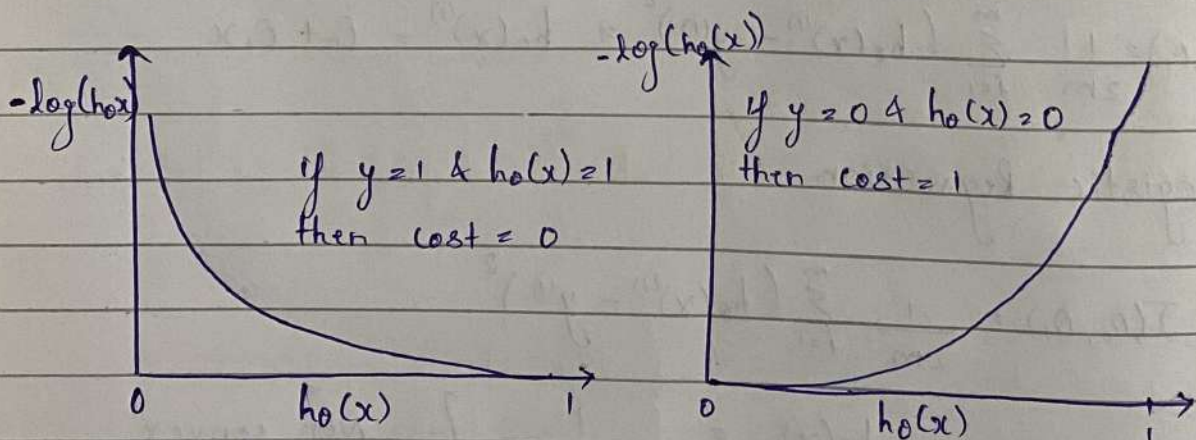 -log(hθx)
if y=1 & hθ(x)=1
then cost = 0
0 hθ(x) 1
-log(hθ(x))
if y=0 & hθ(x)=0
then cost = 1
0 hθ(x) 1